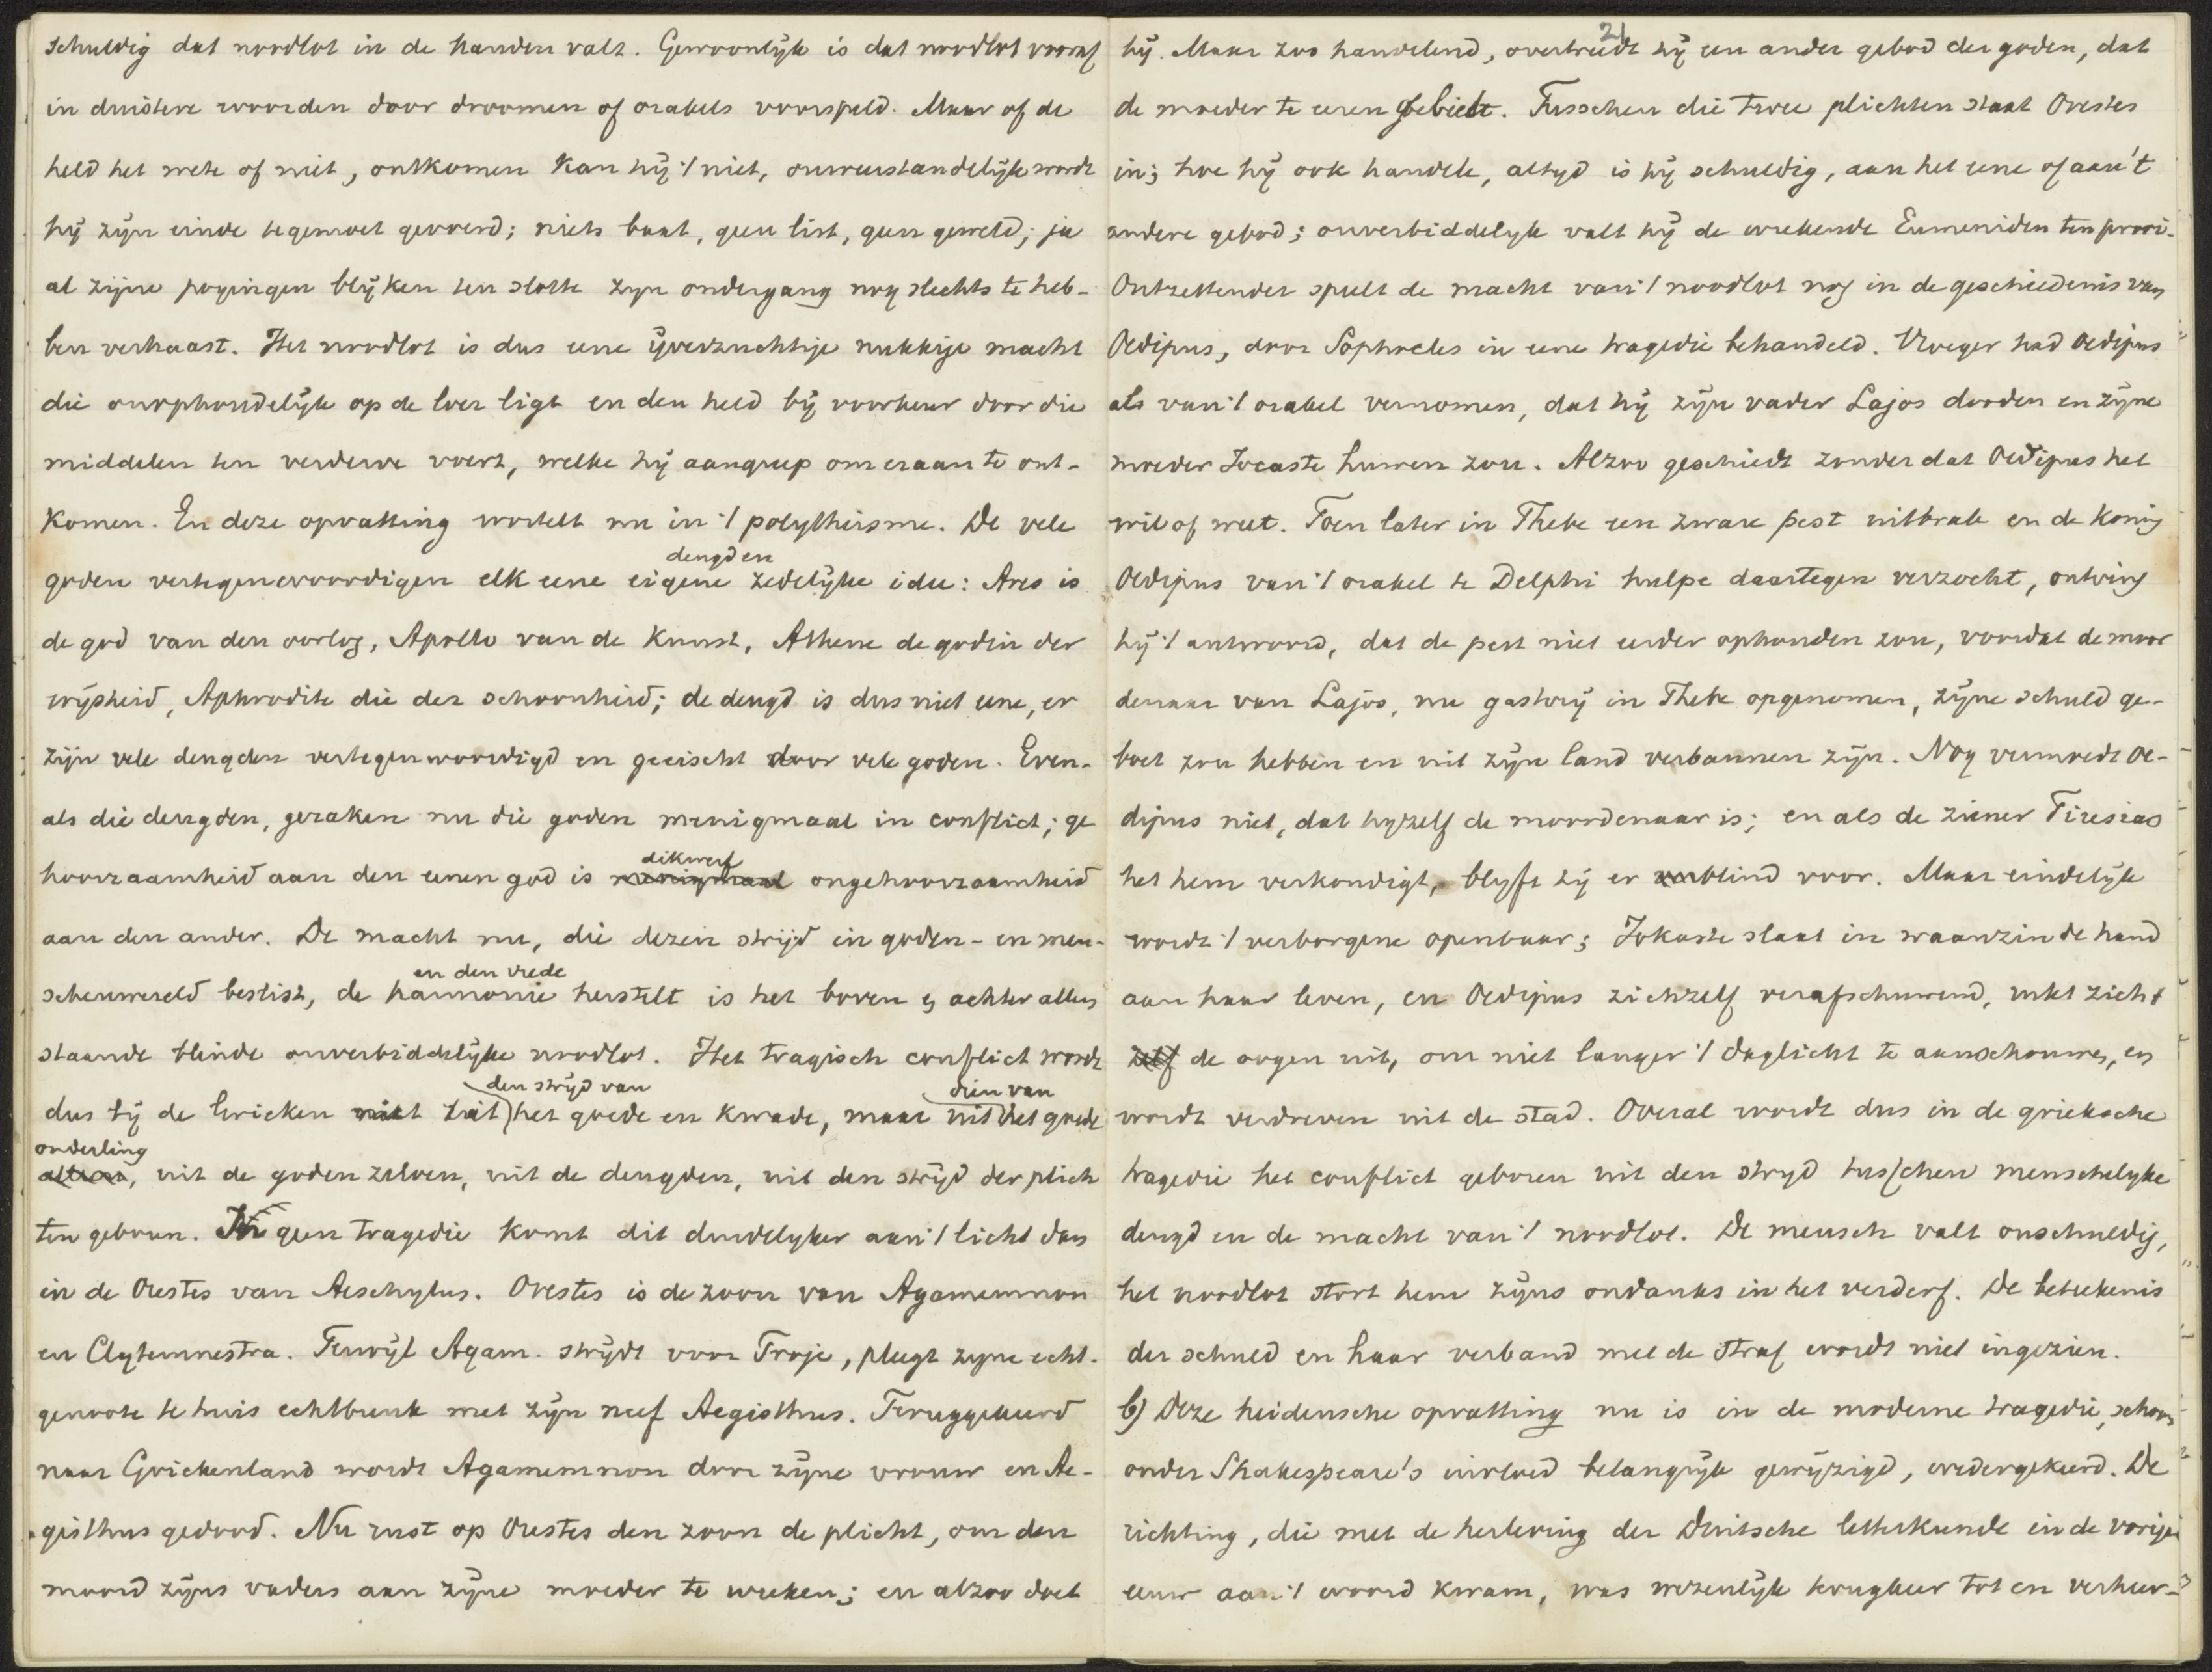 schuldig dat noodlot in de handen valt. Gewoonlijk is dat noodlot vooraf
in duistere woorden door droomen of orakels voorspeld. Maar of de
held het wete of niet, ontkomen kan hij 't niet, onweerstandelijk wordt
hij zijn einde tegemoet gevoerd; niets baat, geen list, geen geweld; ja
al zijne pogingen blijken ten slotte zijn ondergang nog slechts te heb-
ben verhaast. Het noodlot is dus eene ijverzuchtige nukkige macht
die onophoudelijk op de loer ligt en den held bij voorkeur door die
middelen ten verderve voert, welke hij aangreep om eraan te ont-
komen. En deze opvatting wortelt nu in 't polytheisme. De vele
deugd en
goden vertegenwoordigen elk eene eigene zedelijke idee: Ares is
de god van den oorlog, Apollo van de Kunst, Athene de godin der
wijsheid, Aphrodite die der schoonheid; de deugd is dus niet eene, er
zijn vele deugden vertegenwoordigd en geeischt door vele goden. Even-
als die deugden, geraken nu die goden menigmaal in conflict; ge
dikwerf
hoorzaamheid aan den eenen god is menigmaal ongehoorzaamheid
aan den ander. De macht nu, die dezen strijd in goden- en men-
en den vrede
schenwereld beslist, de harmonie herstelt is het boven en achter alles
staande blinde onverbiddelijke noodlot. Het tragisch conflict wordt
den strijd van dien van
dus bij de Grieken niet uit het goede en kwade, maar uit het goede
onderling
uit de goden zelven, uit de deugden, uit den strijd der plich
ten geboren. In geen tragedie komt dit duidelyker aan 't licht dan
in de Orestes van Aeschylus. Orestes is de zoon van Agamemnon
en Clytemnestra. Terwijl Agam. strijdt voor Troje, pleegt zyne echt-
genoote te huis echtbreuk met zijn neef Aegisthus. Teruggekeerd
naar Griekenland wordt Agamemnon door zijne vrouw en Ae-
gisthus gedood. Nu rust op Orestes den zoon de plicht, om den
moord zijns vaders aan zijne moeder te wreken; en alzoo doet
21
hij. Maar zoo handelend, overtreedt hij een ander gebod der goden, dat
de moeder te eeren gebiedt. Tusschen die twee plichten staat Orestes
in; hoe hij ook handele, altyd is hij schuldig, aan het eene of aan 't
andere gebod; onverbiddelyk valt hij de wrekende Eumeniden ten prooi.
Ontzettender speelt de macht van 't noodlot nog in de geschiedenis van
Oedipus, door Sophocles in eene tragedie behandeld. Vroeger had Oedipus
als van 't orakel vernomen, dat hij zijn vader Lajos dooden en zijne
moeder Jocaste huwen zou. Alzoo geschiedt zonder dat Oedipus het
wil of weet. Toen later in Thebe een zware pest uitbrak en de Koning
Oedipus van 't orakel te Delphi hulpe daartegen verzocht, ontving
hij 't antwoord, dat de pest niet eerder ophouden zou, voordat de moor
denaar van Lajos, nu gastvrij in Thebe opgenomen, zijne schuld ge-
boet zou hebben en uit zijn land verbannen zijn. Nog vermoedt Oe-
dipus niet, dat hyzelf de moordenaar is; en als de ziener Tiresias
het hem verkondigt, blyft hij er blind voor. Maar eindelijk
wordt 't verborgene openbaar; Jokaste slaat in waanzin de hand
aan haar leven, en Oedipus zichzelf verafschuwend, rukt zich
zelf de oogen uit, om niet langer 't daglicht te aanschouwen, en
wordt verdreven uit de stad. Overal wordt dus in de grieksche
tragedie het conflict geboren uit den stryd tusschen menschelyke
deugd en de macht van 't noodlot. De mensch valt onschuldig,
het noodlot stort hem zijns ondanks in het verderf. De beteekenis
der schuld en haar verband met de straf wordt niet ingezien.
b) Deze heidensche opvatting nu is in de moderne tragedie, schoon
onder Shakespeare's invloed belangrijk gewijzigd, wedergekeerd. De
richting, die met de herleving der Duitsche letterkunde in de vorige
eeuw aan 't woord kwam, was wezenlijk terugkeer tot en verheer-